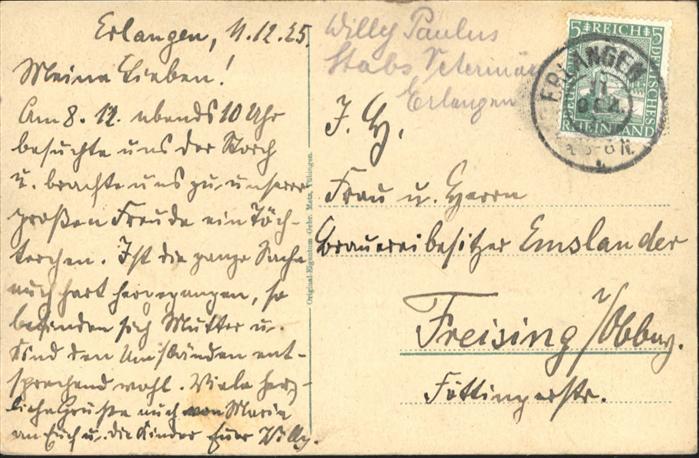 Erlangen, 11.12.25.
Meine Lieben!
Am 8.12. abends 10 Uhr
besuchte uns der Storch
u. brachte uns zu unserer
großen Freude ein Töch-
terchen. Ist die ganze Sache
auch hart hergegangen, so
befinden sich Mutter u.
Kind den Umständen ent-
sprechend wohl. Viele herz-
liche Grüße auch von Marie
an Euch u. die Kinder Euer Willy.
Original-Eigentum Gebr. Metz, Tübingen.
Willy Paulus
Stabs Veterinär
Erlangen
5 REICH 5
DEUTSCHES
RHEINLAND
ERLANGEN
11
Frau u. Herrn
Brauereibesitzer Emslander
Freising /Obbay.
Föttingerstr.